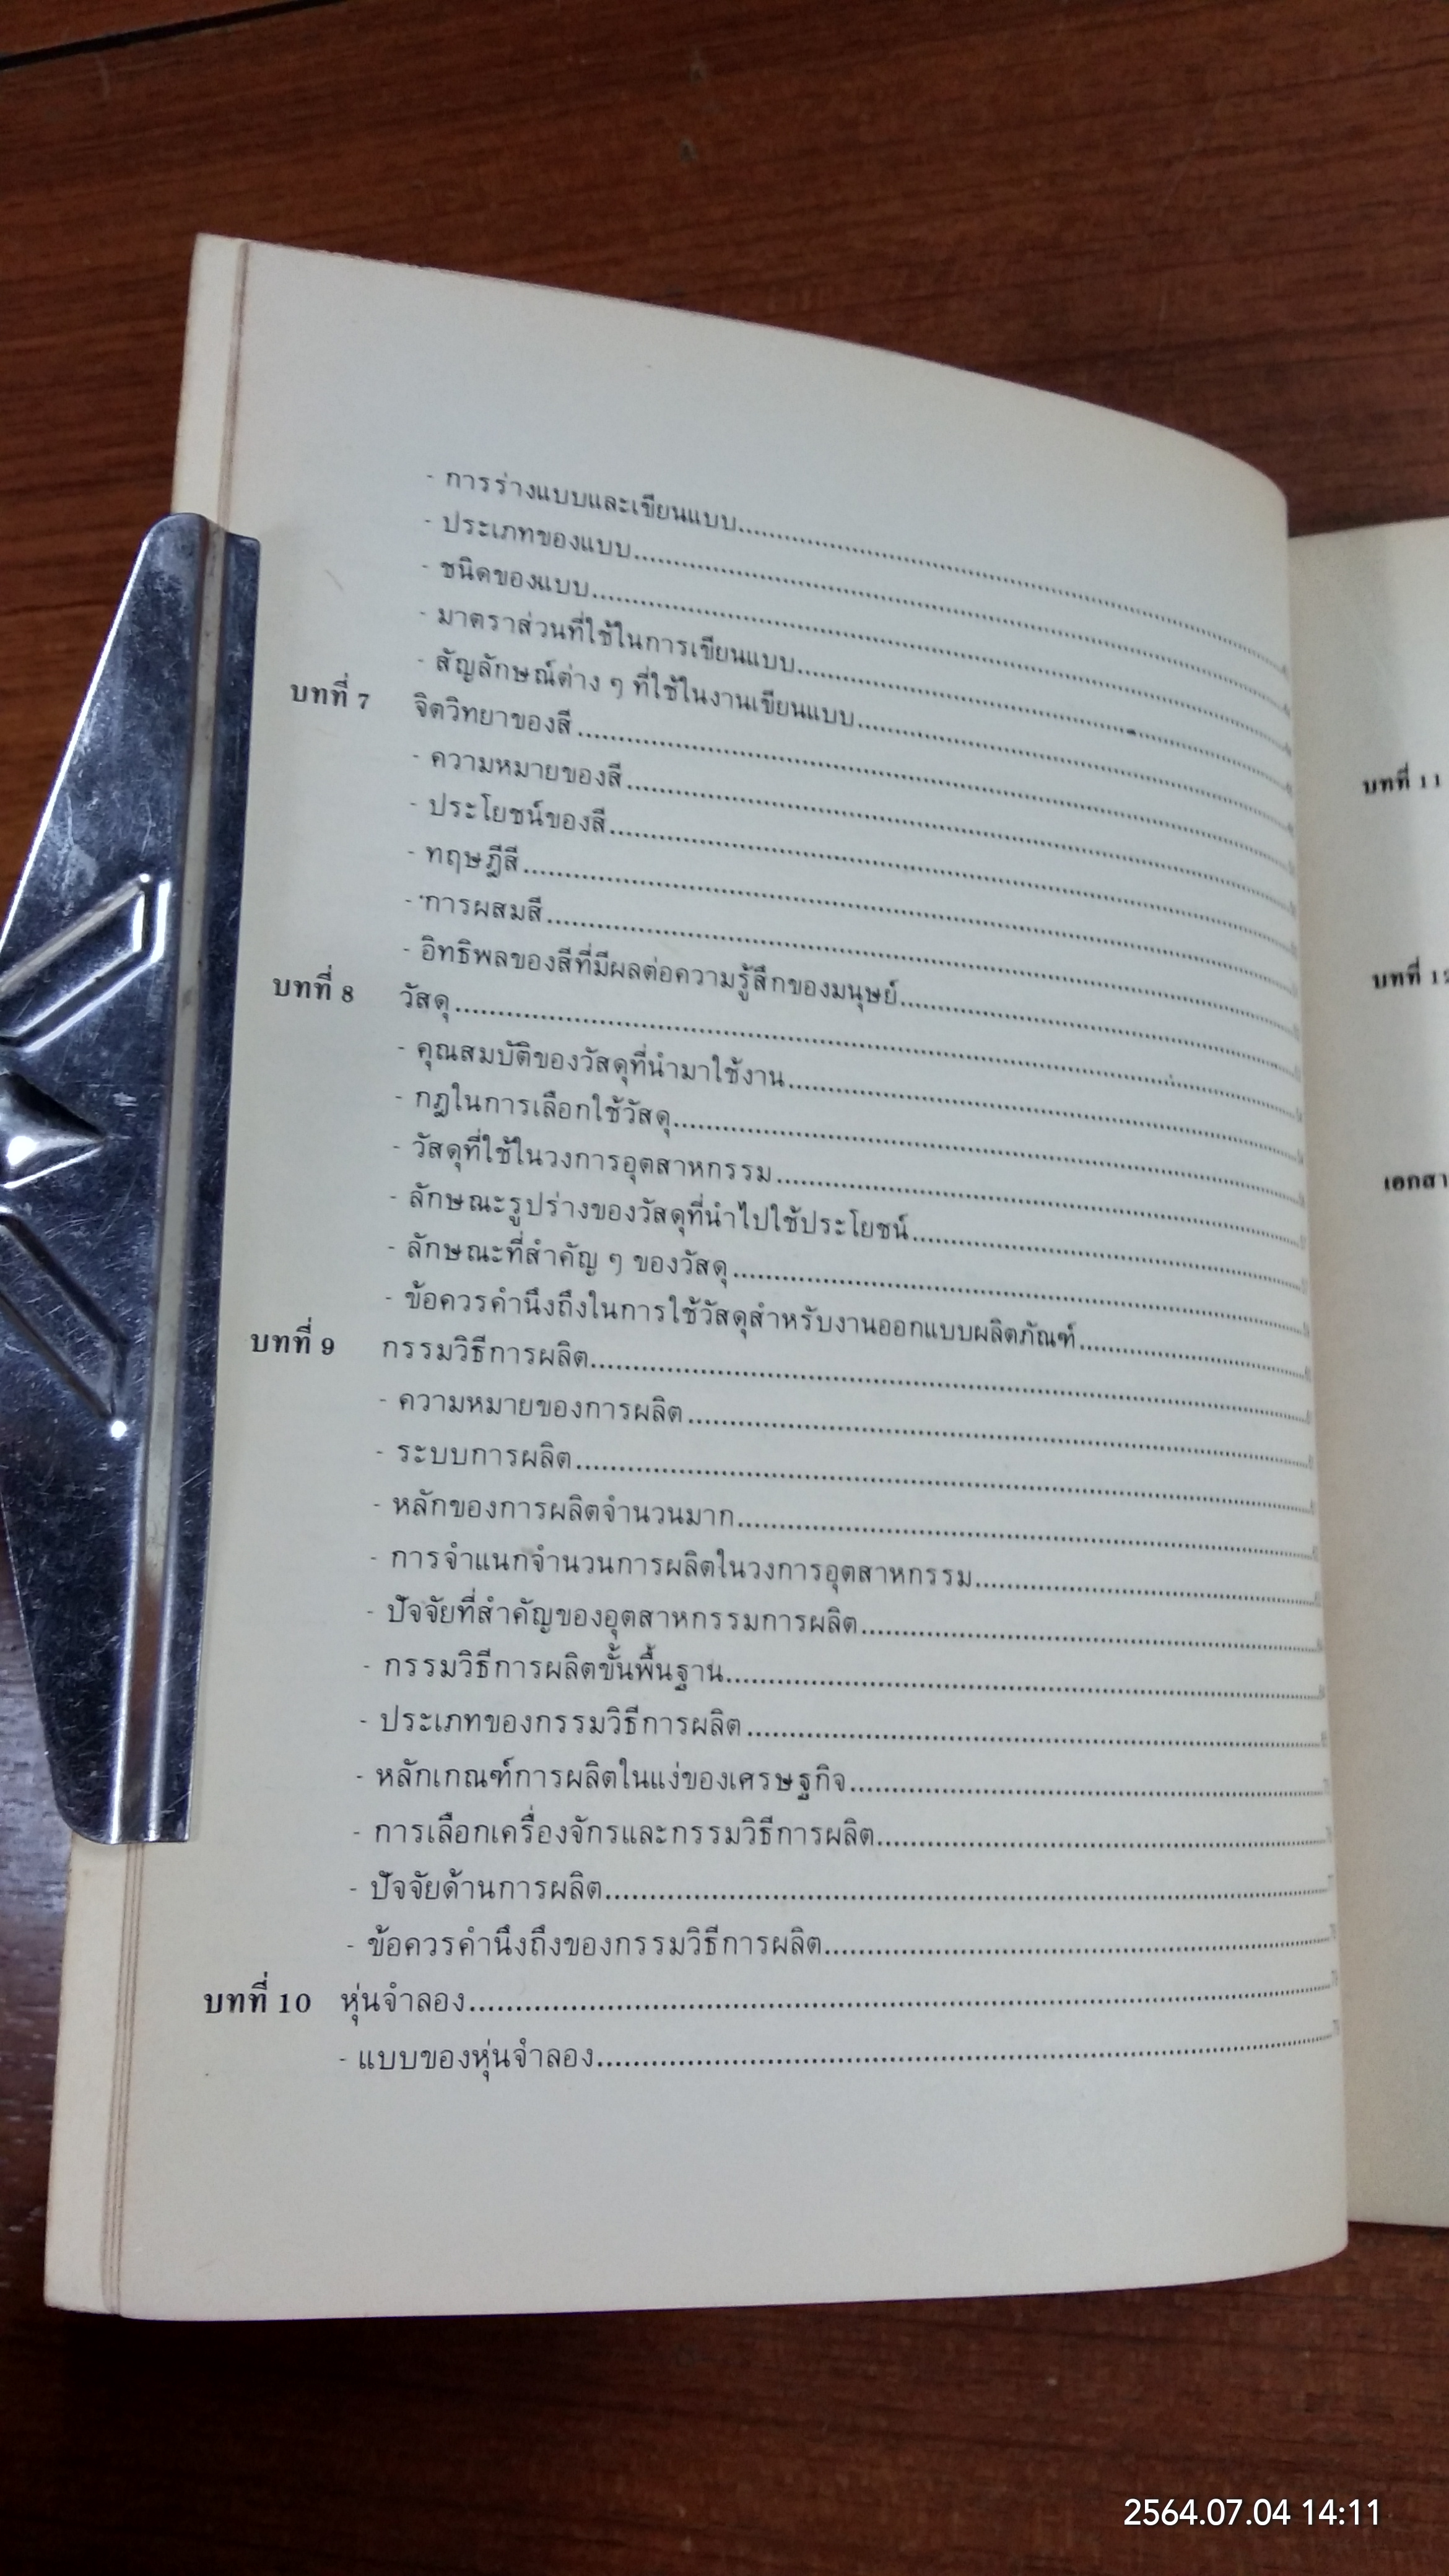 - การร่างแบบและเขียนแบบ
- ประเภทของแบบ
- ชนิดของแบบ
- มาตราส่วนที่ใช้ในการเขียนแบบ
- สัญลักษณ์ต่าง ๆ ที่ใช้ในงานเขียนแบบ
บทที่ 7 จิตวิทยาของสี
- ความหมายของสี
- ประโยชน์ของสี
- ทฤษฎีสี
- การผสมสี
- อิทธิพลของสีที่มีผลต่อความรู้สึกของมนุษย์
บทที่ 8 วัสดุ
- คุณสมบัติของวัสดุที่นำมาใช้งาน
- กฎในการเลือกใช้วัสดุ
- วัสดุที่ใช้ในวงการอุตสาหกรรม
- ลักษณะรูปร่างของวัสดุที่นำไปใช้ประโยชน์
- ลักษณะที่สำคัญ ๆ ของวัสดุ
- ข้อควรคำนึงถึงในการใช้วัสดุสำหรับงานออกแบบผลิตภัณฑ์
บทที่ 9 กรรมวิธีการผลิต
- ความหมายของการผลิต
- ระบบการผลิต
- หลักของการผลิตจำนวนมาก
- การจำแนกจำนวนการผลิตในวงการอุตสาหกรรม
- ปัจจัยที่สำคัญของอุตสาหกรรมการผลิต
- กรรมวิธีการผลิตขั้นพื้นฐาน
- ประเภทของกรรมวิธีการผลิต
- หลักเกณฑ์การผลิตในแง่ของเศรษฐกิจ
- การเลือกเครื่องจักรและกรรมวิธีการผลิต
- ปัจจัยด้านการผลิต
- ข้อควรคำนึงถึงของกรรมวิธีการผลิต
บทที่ 10 หุ่นจำลอง
- แบบของหุ่นจำลอง
บทที่ 11
บทที่ 12
เอกสา
2564.07.04 14:11